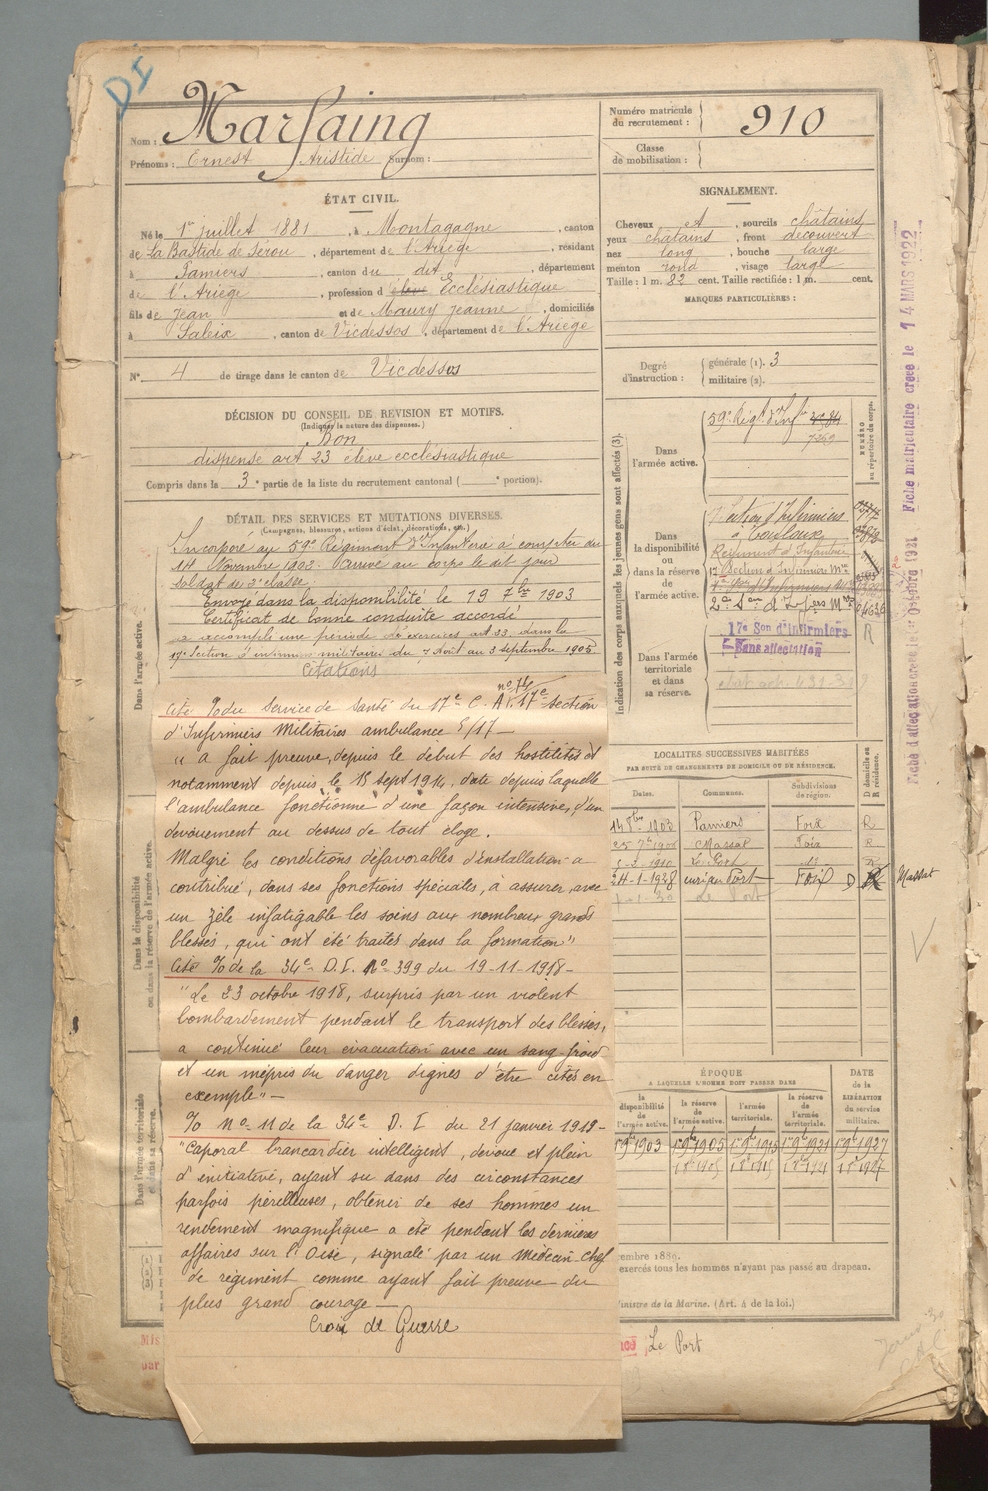 DI
Nom : Marfaing
Prénoms : Ernest Aristide Surnom :
Numéro matricule du recrutement : 910
Classe de mobilisation :
ÉTAT CIVIL.
Né le 1er juillet 1881, à Montagagne, canton
de La Bastide de Sérou, département de l'Ariège, résidant
à Pamiers, canton du dit, département
de l'Ariège, profession d'élève Ecclésiastique
fils de Jean et de Maury Jeanne, domiciliés
à Saleix, canton de Vicdessos, département de l'Ariège
N° 4 de tirage dans le canton de Vicdessos
SIGNALEMENT.
Cheveux et, sourcils châtains
yeux châtains, front découvert
nez long, bouche large
menton rond, visage large
Taille : 1 m. 82 cent. Taille rectifiée : 1 m. cent.
MARQUES PARTICULIÈRES :
Degré d'instruction : générale (1). 3
militaire (2).
DÉCISION DU CONSEIL DE REVISION ET MOTIFS.
(Indiquer la nature des dispenses.)
Bon
dispensé art 23 élève ecclésiastique
Compris dans la 3e partie de la liste du recrutement cantonal ( e portion).
DÉTAIL DES SERVICES ET MUTATIONS DIVERSES.
(Campagnes, blessures, actions d'éclat, décorations, etc.)
Incorporé au 59e Régiment d'Infanterie à compter du
14 Novembre 1902. Arrivé au corps le dit jour
Soldat de 2e classe.
Envoyé dans la disponibilité le 19 7bre 1903
Certificat de bonne conduite accordé
a accompli une période de exercices art 23 dans la
17e Section d'infirmiers militaires du 7 Août au 3 septembre 1905
Citations
n° 74
Cité % du Service de Santé du 17e C. A. 17e section
d'Infirmiers Militaires ambulance 5/17 —
" a fait preuve, depuis le début des hostilités et
notamment depuis le 15 sept 1914, date depuis laquelle
l'ambulance fonctionne d'une façon intensive, d'un
dévouement au dessus de tout éloge.
Malgré les conditions défavorables d'installation a
contribué, dans ses fonctions spéciales, à assurer, avec
un zèle infatigable les soins aux nombreux grands
blessés, qui ont été traités dans la formation"
Cité % de la 34e D. I. N° 399 du 19-11-1918-
"Le 23 octobre 1918, surpris par un violent
bombardement pendant le transport des blessés,
a continué leur évacuation avec un sang-froid
et un mépris du danger dignes d'être cités en
exemple" —
% N° 11 de la 34e D. I du 21 janvier 1919-
"Caporal brancardier intelligent, dévoué et plein
d'initiative, ayant su dans des circonstances
parfois périlleuses, obtenir de ses hommes un
rendement magnifique a été pendant les dernières
affaires sur l'Oise, signalé par un Médecin-Chef
de régiment comme ayant fait preuve du
plus grand courage —
Croix de Guerre
Dans l'armée active.
Dans la disponibilité
ou dans la réserve de l'armée active.
Dans l'armée territoriale
et dans sa réserve.
Indication des corps auxquels les jeunes gens sont affectés (3).
Dans l'armée active.
59e Régt d'Infie
7269
NUMÉRO au répertoire du corps.
Dans la disponibilité ou dans la réserve de l'armée active.
Section d'Infirmiers
à Toulouse
Régiment d'Infanterie
17 Section d'Infirmiers Mres
2e Son d'Infers Mres
17e Son d'infirmiers
Sans affectation
R
Dans l'armée territoriale et dans sa réserve.
Fiche matriculaire créée le 14 MARS 1922
LOCALITÉS SUCCESSIVES HABITÉES
PAR SUITE DE CHANGEMENTS DE DOMICILE OU DE RÉSIDENCE.
Dates. Communes. Subdivisions de région. D domicile ou R résidence.
1903 Pamiers Foix R
Massat Foix R
1910 Le Port R
24-1-1928 curé au Port Foix D R Massat
Le Port
ÉPOQUE
A LAQUELLE L'HOMME DOIT PASSER DANS
la disponibilité de l'armée active. la réserve de l'armée active. l'armée territoriale. la réserve de l'armée territoriale.
DATE de la LIBÉRATION du service militaire.
1903 1905 1915 1921 1927
embre 1889.
exercés tous les hommes n'ayant pas passé au drapeau.
Ministre de la Marine. (Art. 4 de la loi.)
Mis
par
Le Port